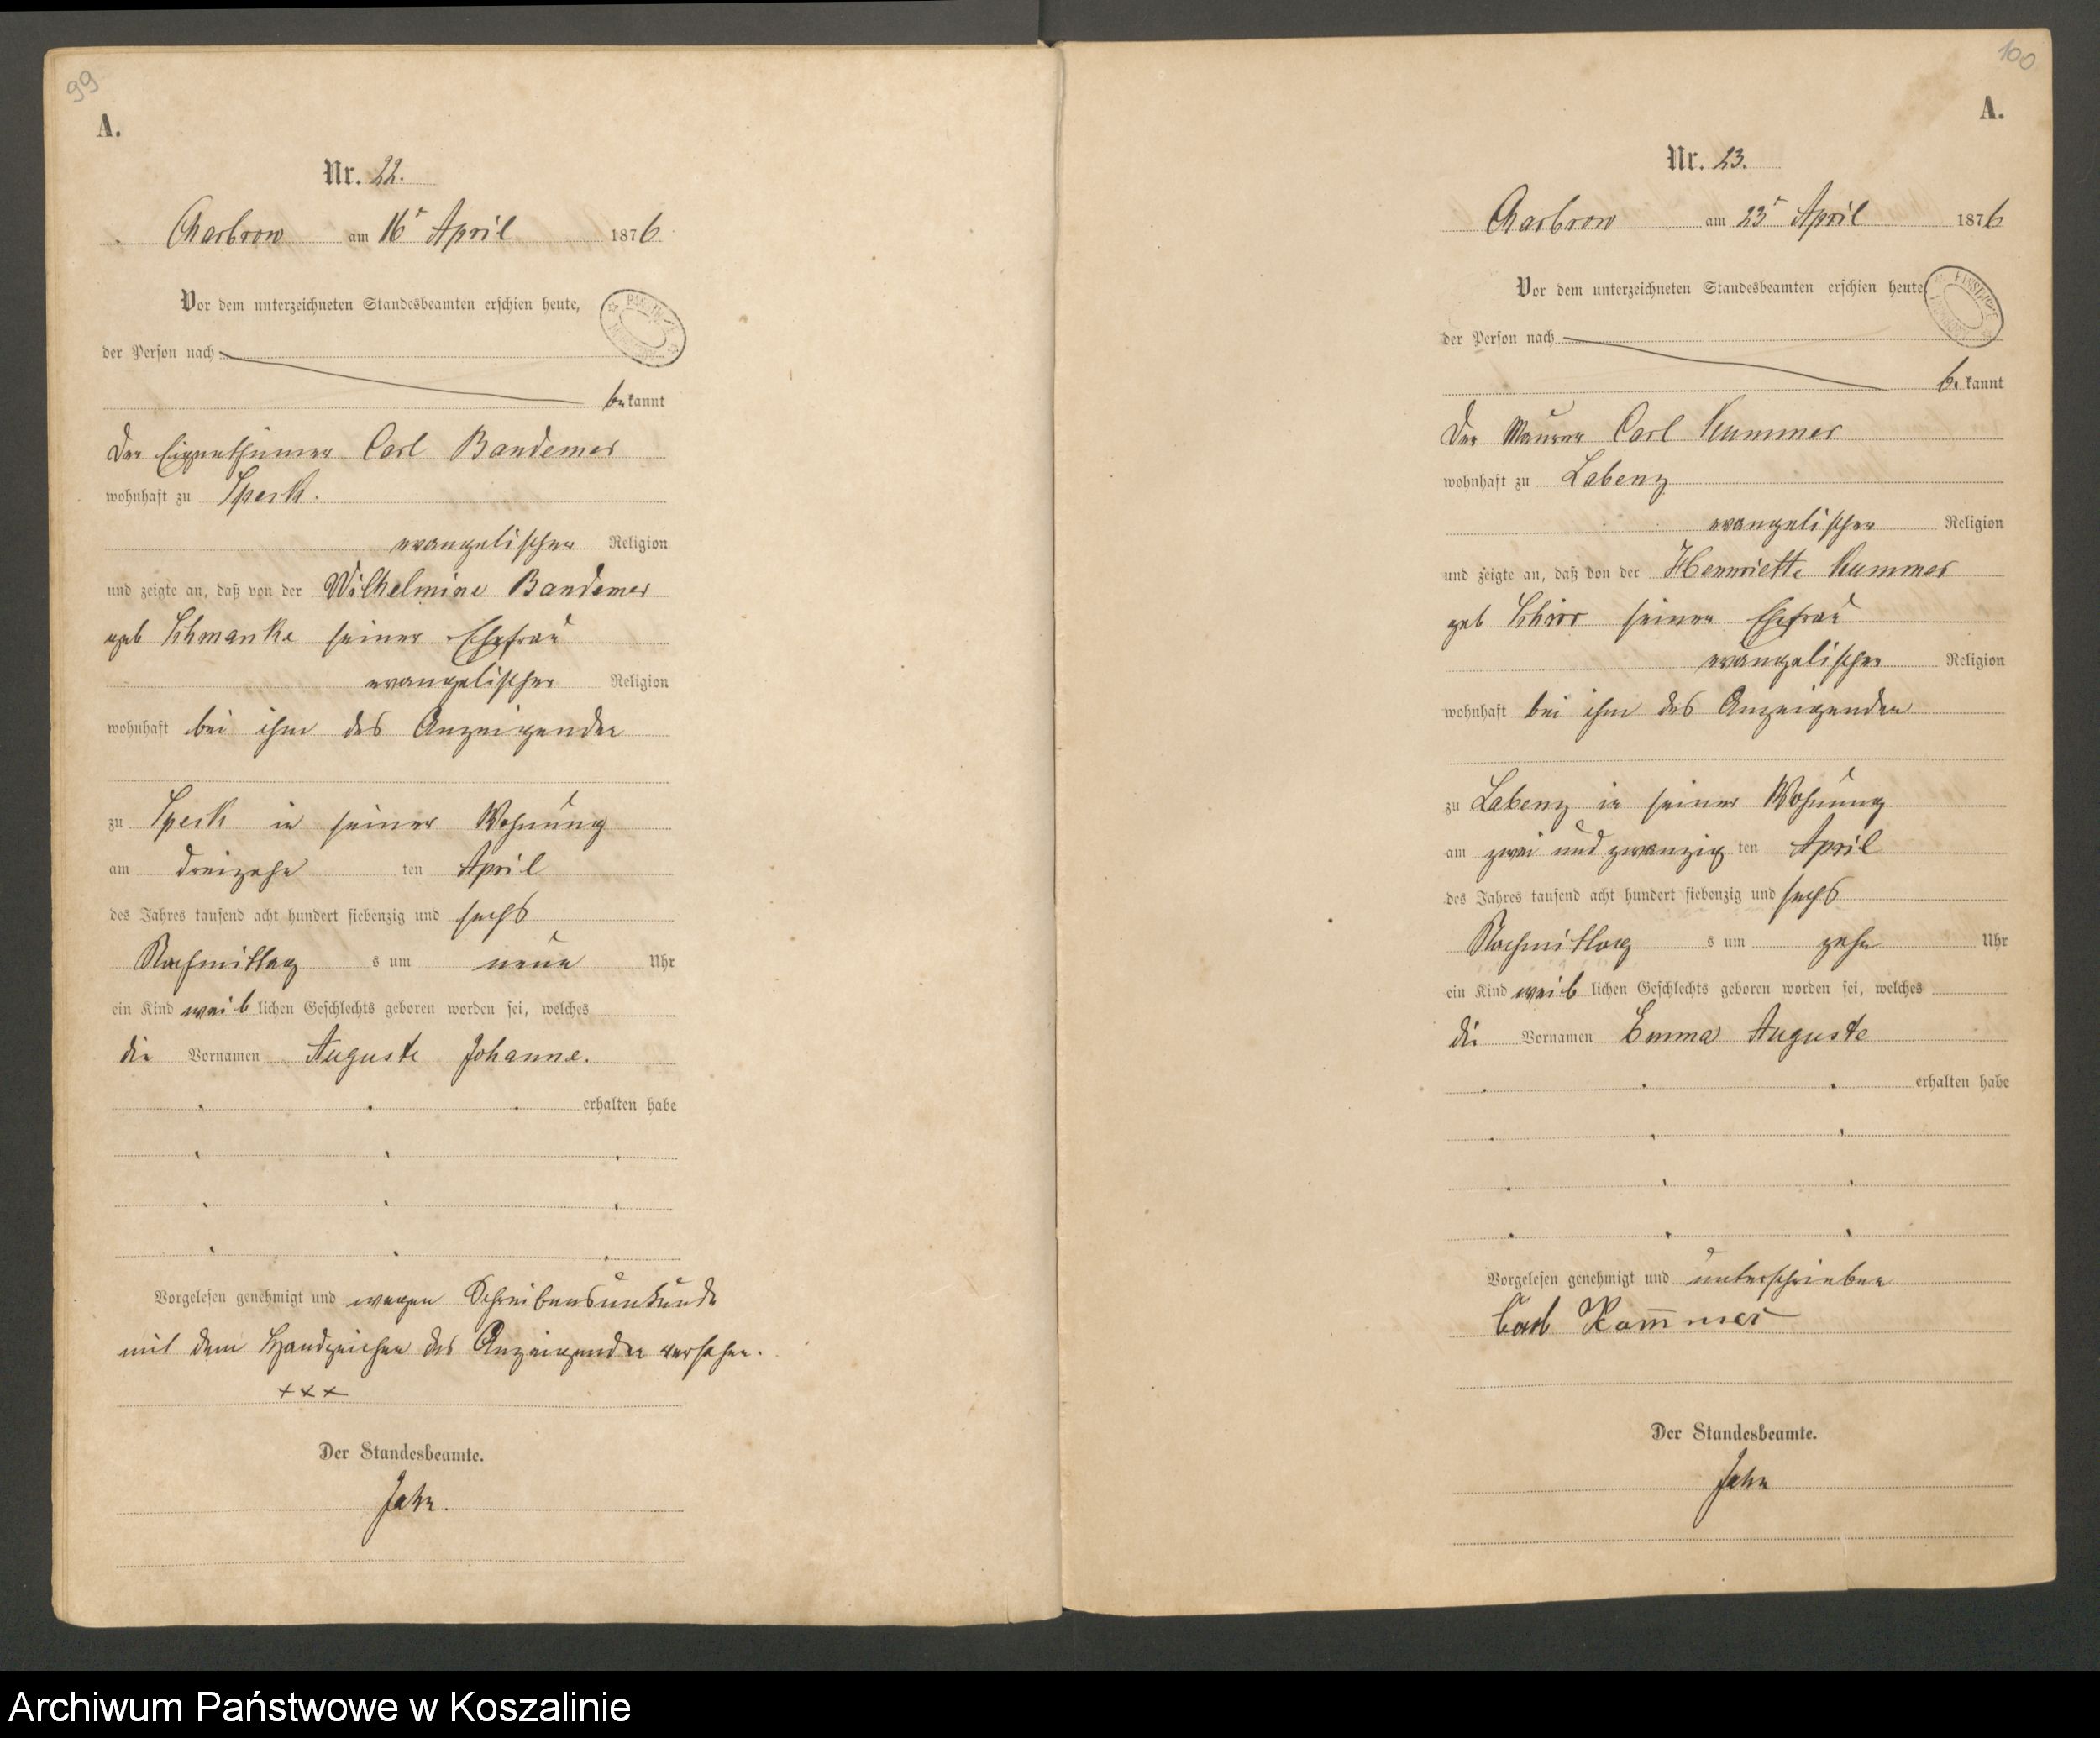 99
A.
Nr. 22.
Charbrow am 16t April 1876.
Vor dem unterzeichneten Standesbeamten erschien heute,
der Person nach
bekannt
der Eigenthümer Carl Bandemer
wohnhaft zu Speck.
evangelischer Religion
und zeigte an, daß von der Wilhelmine Bandemer
geb Schmanke seiner Ehefrau
evangelischer Religion
wohnhaft bei ihm des Anzeigenden
zu Speck in seiner Wohnung
am dreizehn ten April
des Jahres tausend acht hundert siebenzig und sechs
Nachmittag s um neun Uhr
ein Kind weiblichen Geschlechts geboren worden sei, welches
die Vornamen Auguste Johanne.
erhalten habe
Vorgelesen genehmigt und wegen Schreibensunkunde
mit dem Handzeichen des Anzeigenden versehen.
+++
Der Standesbeamte.
Jahn.
100
A.
Nr. 23.
Charbrow am 23t April 1876
Vor dem unterzeichneten Standesbeamten erschien heute,
der Person nach
bekannt
der Maurer Carl Kummer
wohnhaft zu Labenz
evangelischer Religion
und zeigte an, daß von der Hennriette Kummer
geb Schirr seiner Ehefrau
evangelischer Religion
wohnhaft bei ihm des Anzeigenden
zu Labenz in seiner Wohnung
am zwei und zwanzig ten April
des Jahres tausend acht hundert siebenzig und sechs
Nachmittag s um zehn Uhr
ein Kind weiblichen Geschlechts geboren worden sei, welches
die Vornamen Emma Auguste
erhalten habe
Vorgelesen genehmigt und unterschrieben
Carl Kom̅mer
Der Standesbeamte.
Jahn
Archiwum Państwowe w Koszalinie